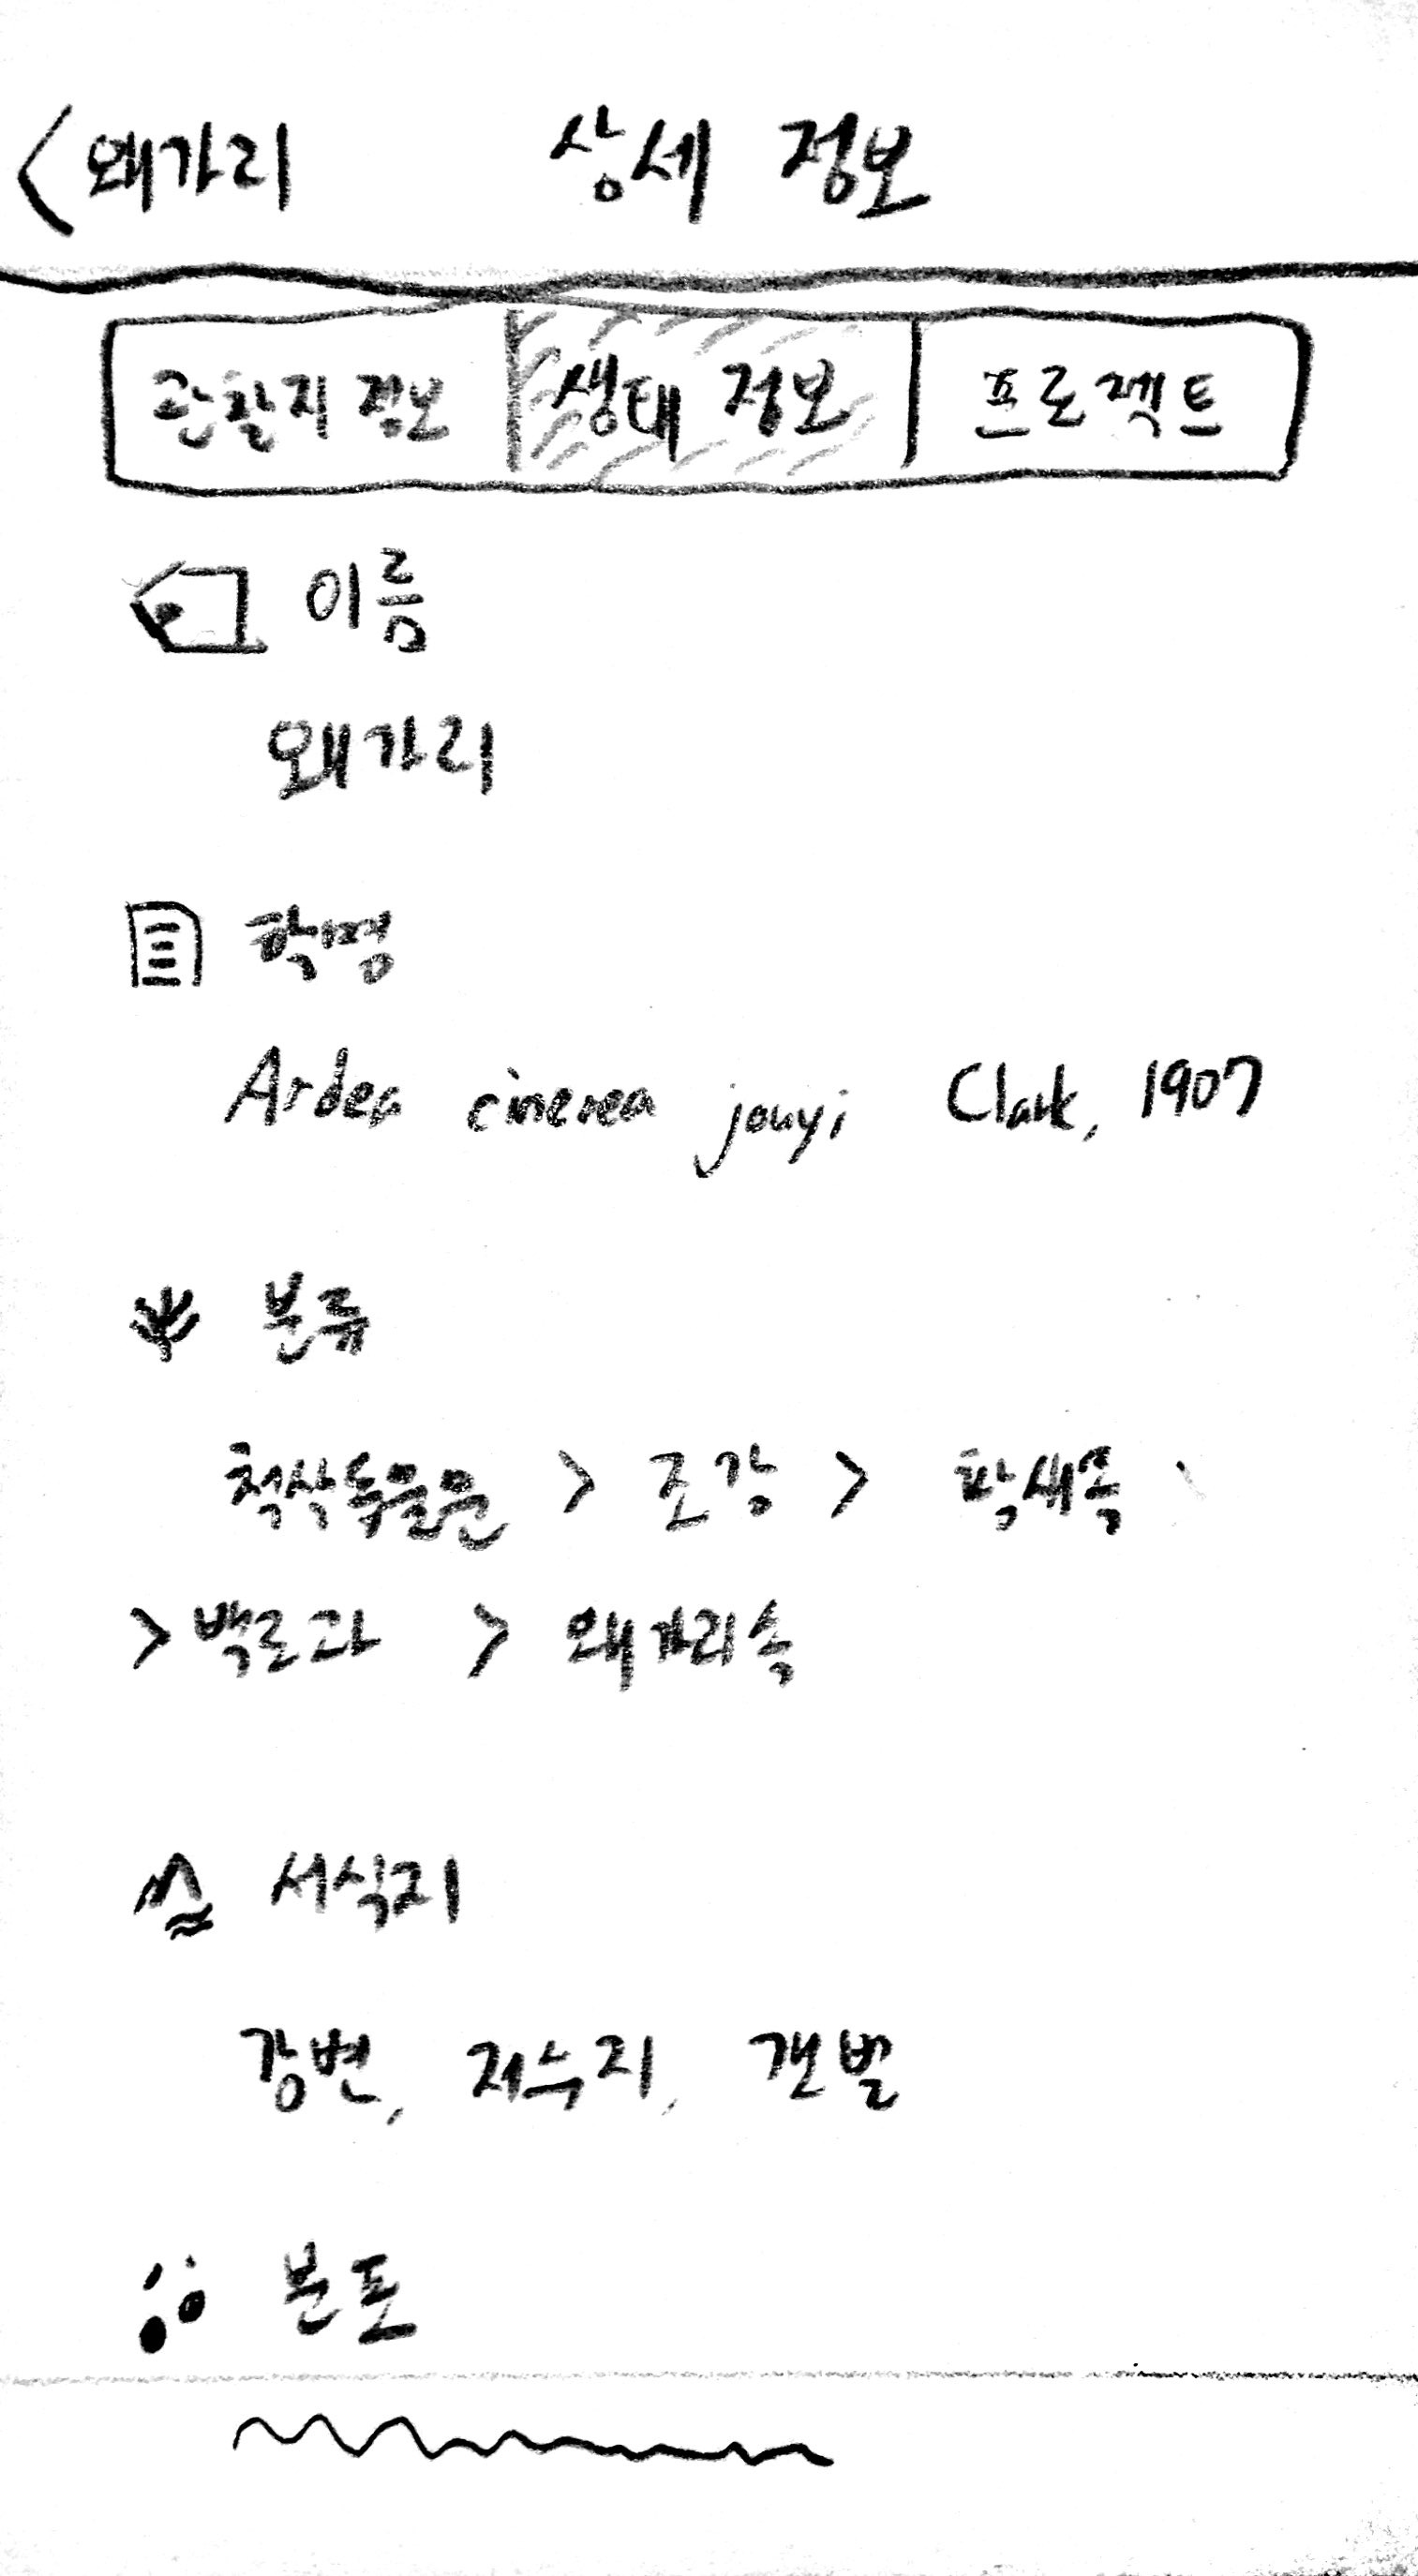 <왜가리 상세 정보
관찰지 정보 생태 정보 프로젝트
이름
왜가리
학명
Ardea cinerea jouyi Clark, 1907
분류
척삭동물문 > 조강 > 황새목
> 백로과 > 왜가리속
서식지
강변, 저수지, 갯벌
분포